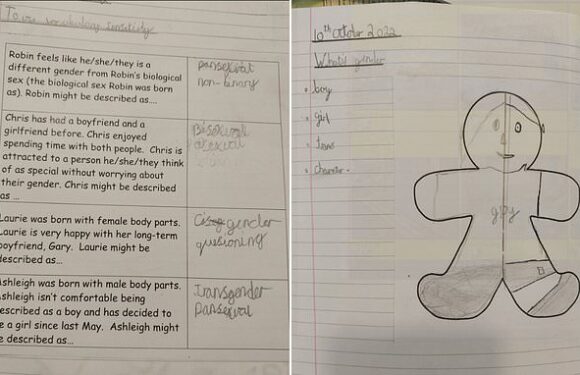 To use vocabulary sensitively
Robin feels like he/she/they is a
different gender from Robin's biological
sex (the biological sex Robin was born
as). Robin might be described as....
pansexual
non-binary
Chris has had a boyfriend and a
girlfriend before. Chris enjoyed
spending time with both people. Chris is
attracted to a person he/she/they think
of as special without worrying about
their gender. Chris might be described
as ...
Bisexual
asexual
Laurie was born with female body parts.
Laurie is very happy with her long-term
boyfriend, Gary. Laurie might be
described as...
gender
Ashleigh was born with male body parts.
Ashleigh isn't comfortable being
described as a boy and has decided to
be a girl since last May. Ashleigh might
be described as...
Transgender
Pansexual
10th October 2022
What's gender
boy
girl
trans
gay